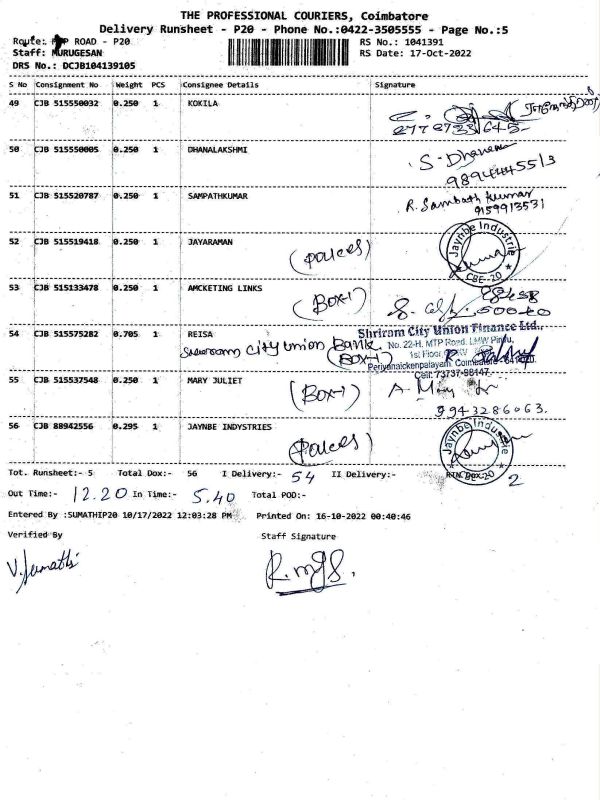 THE PROFESSIONAL COURIERS, Coimbatore
Delivery Runsheet - P20 - Phone No.:0422-3505555 - Page No.:5
Route: ROAD - P20
RS No.: 1041391
Staff: MURUGESAN
RS Date: 17-Oct-2022
DRS No.: DCJB104139105
S No Consignment No Weight PCS Consignee Details Signature
49 CJB 515550032 0.250 1 KOKILA
50 CJB 515550005 0.250 1 DHANALAKSHMI S-Dhanem
51 CJB 515520787 0.250 1 SAMPATHKUMAR R. Sambath kumar
9159913531
52 CJB 515519418 0.250 1 JAYARAMAN Jaynbe Industrie
CBE-20
53 CJB 515133478 0.250 1 AMCKETING LINKS (BOX-1)
54 CJB 515575282 0.705 1 REISA Shriram City Union Finance Ltd.,
City Union Bank (BOX-1) No. 22-H, MTP Road, LMW Pirivu,
1st Floor,
Periyanaickenpalayam, Coimbatore
Cell: 73737-98147
55 CJB 515537548 0.250 1 MARY JULIET (BOX-1)
9943286063.
56 CJB 88942556 0.295 1 JAYNBE INDYSTRIES Jaynbe Industrie
Tot. Runsheet:- 5 Total Dox:- 56 I Delivery:- 54 II Delivery:- RTN.Dox:- 2
Out Time:- 12.20 In Time:- 5.40 Total POD:-
Entered By :SUMATHIP20 10/17/2022 12:03:28 PM Printed On: 16-10-2022 00:40:46
Verified By Staff Signature
V. Sumathi